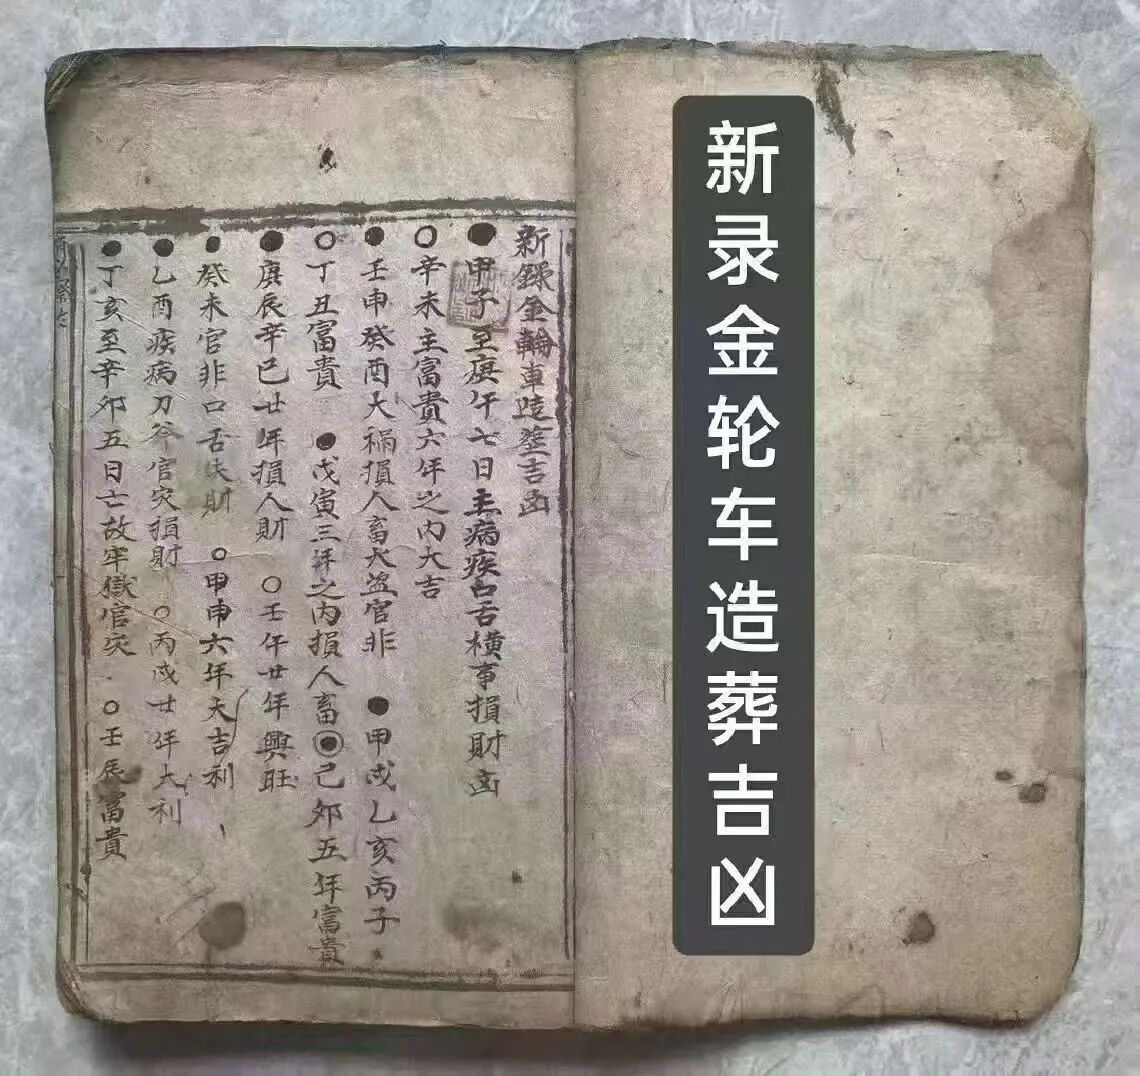 新录金轮车造葬吉凶
新錄金輪車造塟吉凶
●甲子至庚午七日主病疾口舌橫事損財凶
○辛未主富貴六年之內大吉
●壬申癸酉大禍損人畜火盗官非 ●甲戌乙亥丙子
○丁丑富貴 ●戊寅三年之内損人畜◉己夘五年富貴
●庚辰辛巳廿年損人財 ○壬午廿年興旺
●癸未官非口舌失財 ○甲申六年大吉利
●乙酉疾病刀 官灾損財 ○丙戌廿年大利
●丁亥至辛夘五日亡故牢獄官灾 ○壬辰富貴